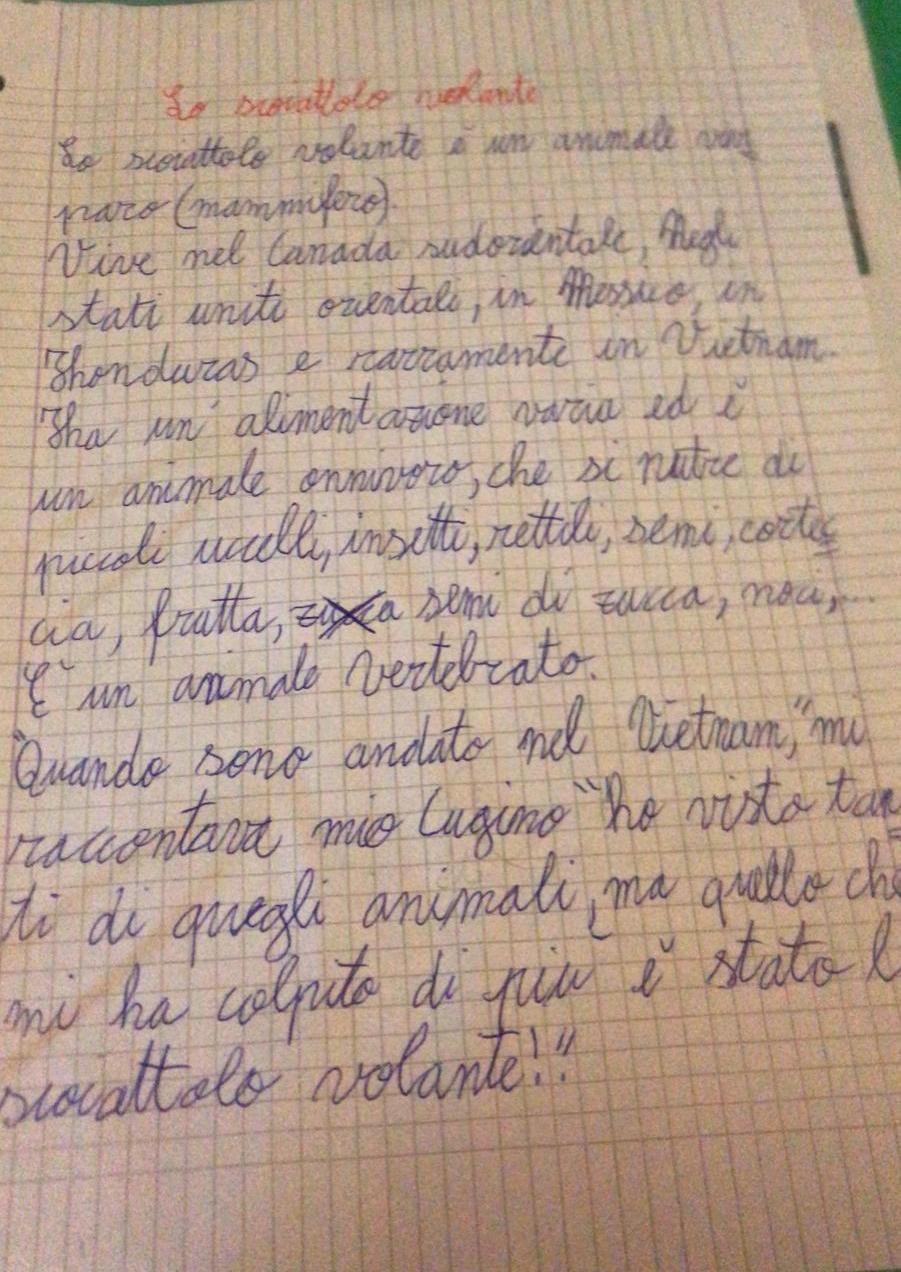 Lo scoiattolo volante
Lo scoiattolo volante è un animale vivi
paro (mammifero).
Vive nel Canada sudorientale, Negli
stati uniti orientali, in Messico, in
Honduras e rarramente in Vietnam.
Ha un' alimentazione varia ed è
un animale onnivoro, che si nutre di
piccoli uccelli, insetti, rettili, semi, cortec
cia, frutta, semi di zucca, noci,...
È un animale vertebrato.
"Quando sono andato nel Vietnam," mi
raccontava mio Cugino "ho visto tan
ti di quegli animali, ma quello che
mi ha colpito di più è stato l
scoiattolo volante!"